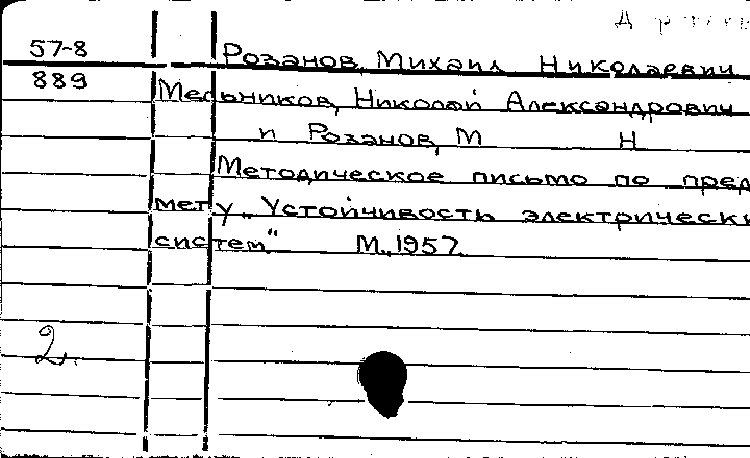 57-8 Розанов, Михаил Николаевич
889 Мельников, Николай Александрович
и Розанов, М Н
Методическое письмо по пред
мету „Устойчивость электрически
систем“ М., 1957.
2